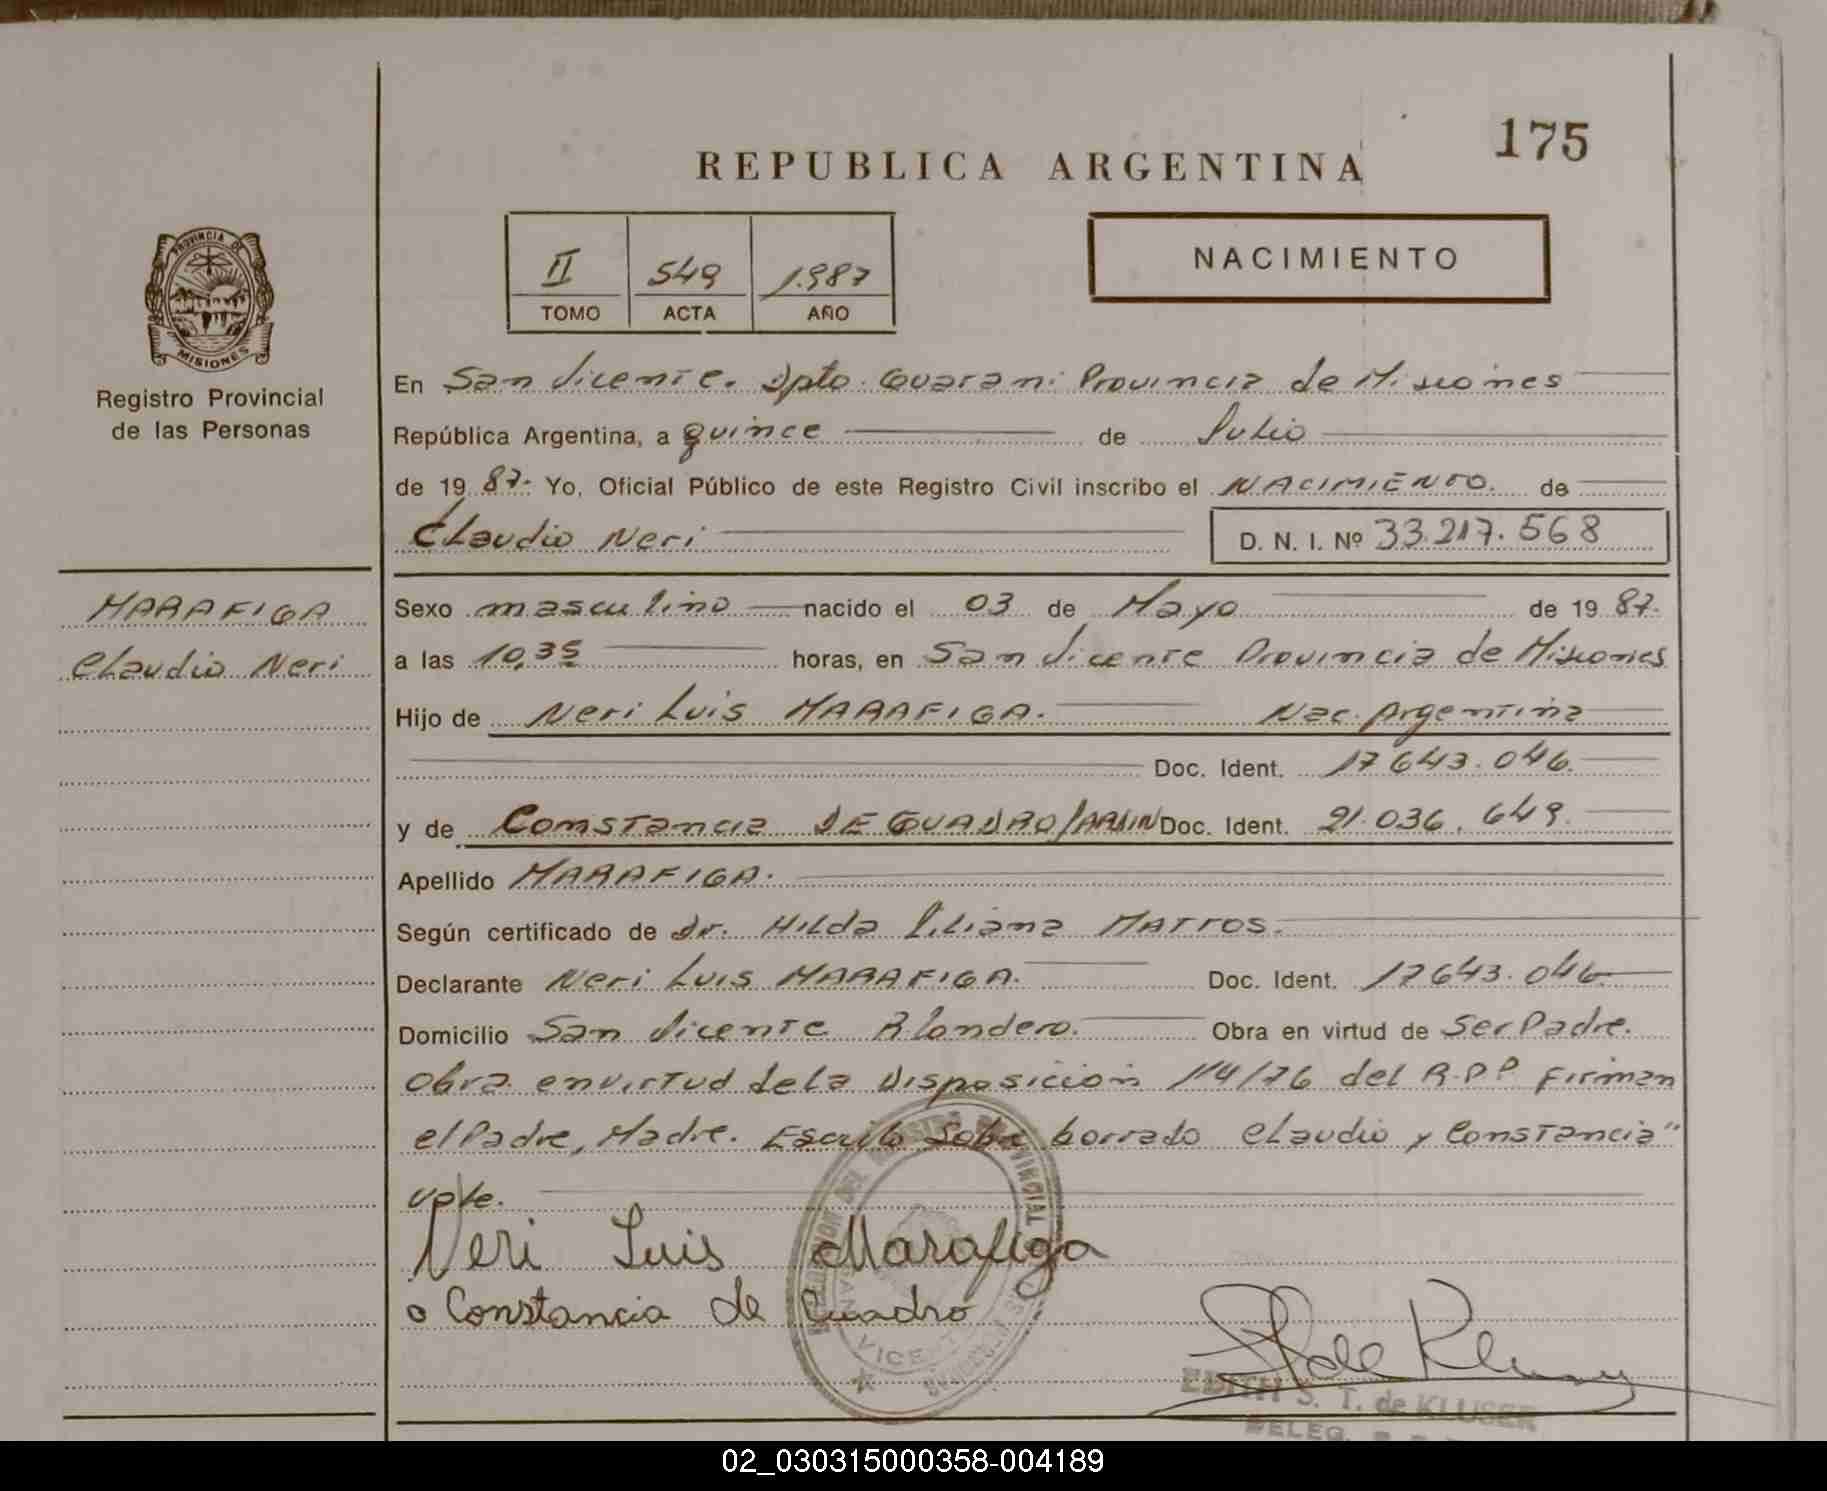 175
REPUBLICA ARGENTINA
II 549 1.987
TOMO ACTA AÑO
NACIMIENTO
PROVINCIA DE
MISIONES
Registro Provincial
de las Personas
En San Vicente. Dpto. Guarani Provincia de Misiones
República Argentina, a quince de Julio
de 1987.- Yo, Oficial Público de este Registro Civil inscribo el NACIMIENTO. de
Claudio Neri D. N. I. Nº 33.217.568
MARAFIGA
Claudio Neri
Sexo masculino nacido el 03 de Mayo de 1987.
a las 10,35 horas, en San Vicente Provincia de Misiones
Hijo de Neri Luis MARAFIGA. Nac. Argentina
Doc. Ident. 17643.046.
y de Constancia DE QUADRO Doc. Ident. 21.036.649.
Apellido MARAFIGA.
Según certificado de Dr. Hilda Liliana MATTOS.
Declarante Neri Luis MARAFIGA. Doc. Ident. 17643.046
Domicilio San Vicente Rlondero. Obra en virtud de Ser Padre.
Obra en virtud de la Disposición 114/76 del R.P.P. Firman
el Padre, Madre. Escrito Sobre borrado Claudio y Constancia"
Vale.
Neri Luis Marafiga
Constancia de Cuadro
VICENTE
EDITH S. T. de KLUSER
DELEG.
02_030315000358-004189